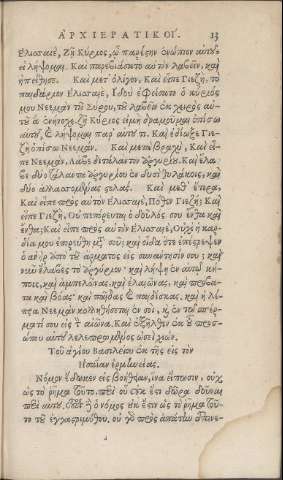 ΑΡΧΙΕΡΑΤΙΚΟΙ. 33
Ελισσαιέ, Ζῇ Κύριος, ᾧ παρέστην ἐνώπιον αὐτοῦ, εἰ
λήψομαι. Καὶ παρεβιάσατο αὐτὸν λαβεῖν, καὶ
ἠπείθησε. Καὶ μετ' ὀλίγον, Καὶ εἶπε Γιεζῆ, τὸ
παιδάριον Ελισσαιέ, Ιδοὺ ἐφείσατο ὁ κύριός
μου Νεεμὰν τοῦ Σύρου, τοῦ λαβεῖν ἐκ χειρὸς αὐ-
τοῦ ἃ ἐνήνοχε. ζῇ Κύριος εἰ μὴ δραμοῦμαι ὀπίσω
αὐτοῦ, καὶ λήψομαι παρ' αὐτοῦ τι. Καὶ ἐδίωξε Γιε-
ζῆ ὀπίσω Νεεμάν. Καὶ μετὰ βραχὺ, Καὶ εἶ-
πε Νεεμὰν, Λάβε διτάλαντον ἀργυρίου. Καὶ ἔλα-
βε δύο τάλαντα ἀργυρίου ἐν δυσὶ θυλάκοις, καὶ
δύο ἀλλασσομένας στολάς. Καὶ μεθ' ἕτερα,
Καὶ εἶπε πρὸς αὐτὸν Ελισσαιέ, Πόθεν Γιεζῆ; Καὶ
εἶπε Γιεζῆ, Οὐ πεπόρευται ὁ δοῦλός σου ἔνθα καὶ
ἔνθα; Καὶ εἶπε πρὸς αὐτὸν Ελισσαιέ, Οὐχὶ ἡ καρ-
δία μου ἐπορεύθη μετὰ σοῦ; καὶ οἶδα ὅτε ἐπέστρεψεν
ὁ ἀνὴρ ἀπὸ τοῦ ἅρματος εἰς συνάντησίν σου; καὶ
νῦν ἔλαβες τὸ ἀργύριον· καὶ λήψῃ ἐν αὐτῷ κή-
πους, καὶ ἀμπελῶνας, καὶ ἐλαιῶνας, καὶ πρόβα-
τα καὶ βόας· καὶ παῖδας καὶ παιδίσκας, καὶ ἡ λέ-
πρα Νεεμὰν κολληθήσεται ἐν σοὶ, καὶ ἐν τῷ σπέρ-
ματί σου εἰς τὸν αἰῶνα. Καὶ ἐξῆλθεν ἐκ τοῦ προσ-
ώπου αὐτοῦ λελεπρωμένος ὡσεὶ χιών.
Τοῦ ἁγίου Βασιλείου ἐκ τῆς εἰς τὸν
Ησαΐαν ἑρμηνείας.
Νόμον ἔδωκεν εἰς βοήθειαν, ἵνα εἴπωσιν. οὐχ
ὡς τὸ ῥῆμα τοῦτο. περὶ οὗ οὐκ ἔστι δῶρα δοῦναι
περὶ αὐτοῦ, ὁ νόμος οὐκ ἔστιν ὡς τὸ ῥῆμα τοῦ-
το τοῦ ἐγγαστριμύθου. οὐ γὰρ πρὸς ἀπάτην